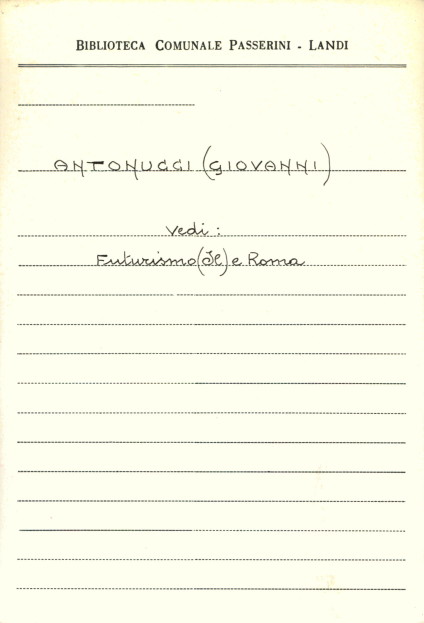 BIBLIOTECA COMUNALE PASSERINI - LANDI
ANTONUCCI (GIOVANNI)
Vedi :
Futurismo (Il) e Roma